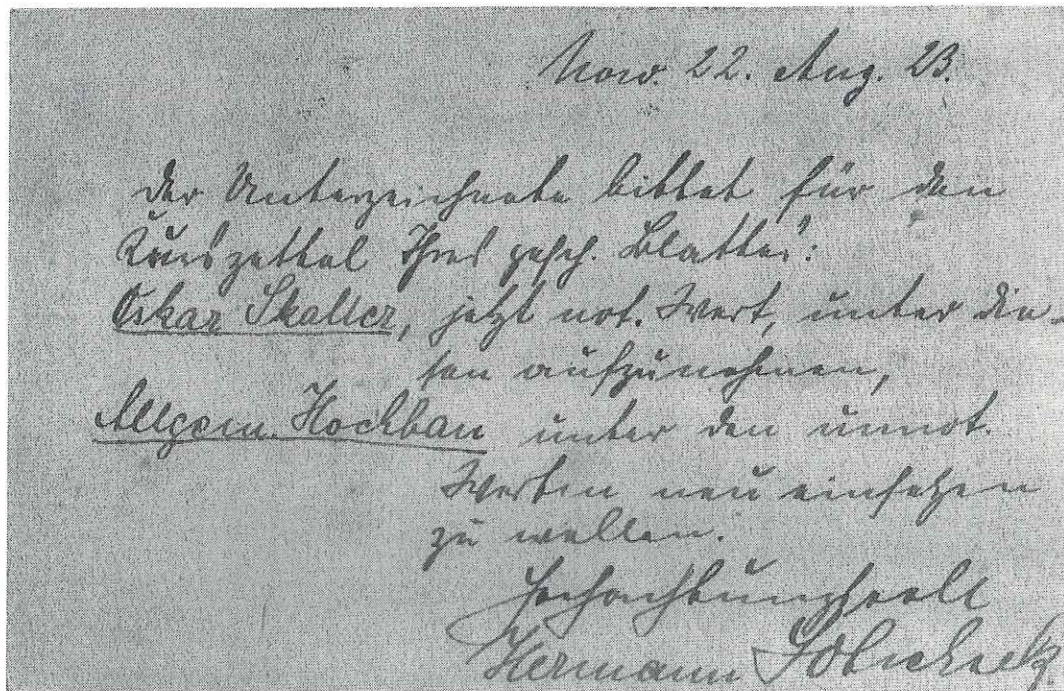 Now. 22. Aug. 23.
Der Unterzeichnete bittet für den
Kurszettel Ihres gesch. Blattes:
Oskar Skaller, jetzt not. Wert, unter die-
sen aufzunehmen,
Allgem. Hochbau unter den unnot.
Werten neu einsetzen
zu wollen.
Hochachtungsvoll
Hermann